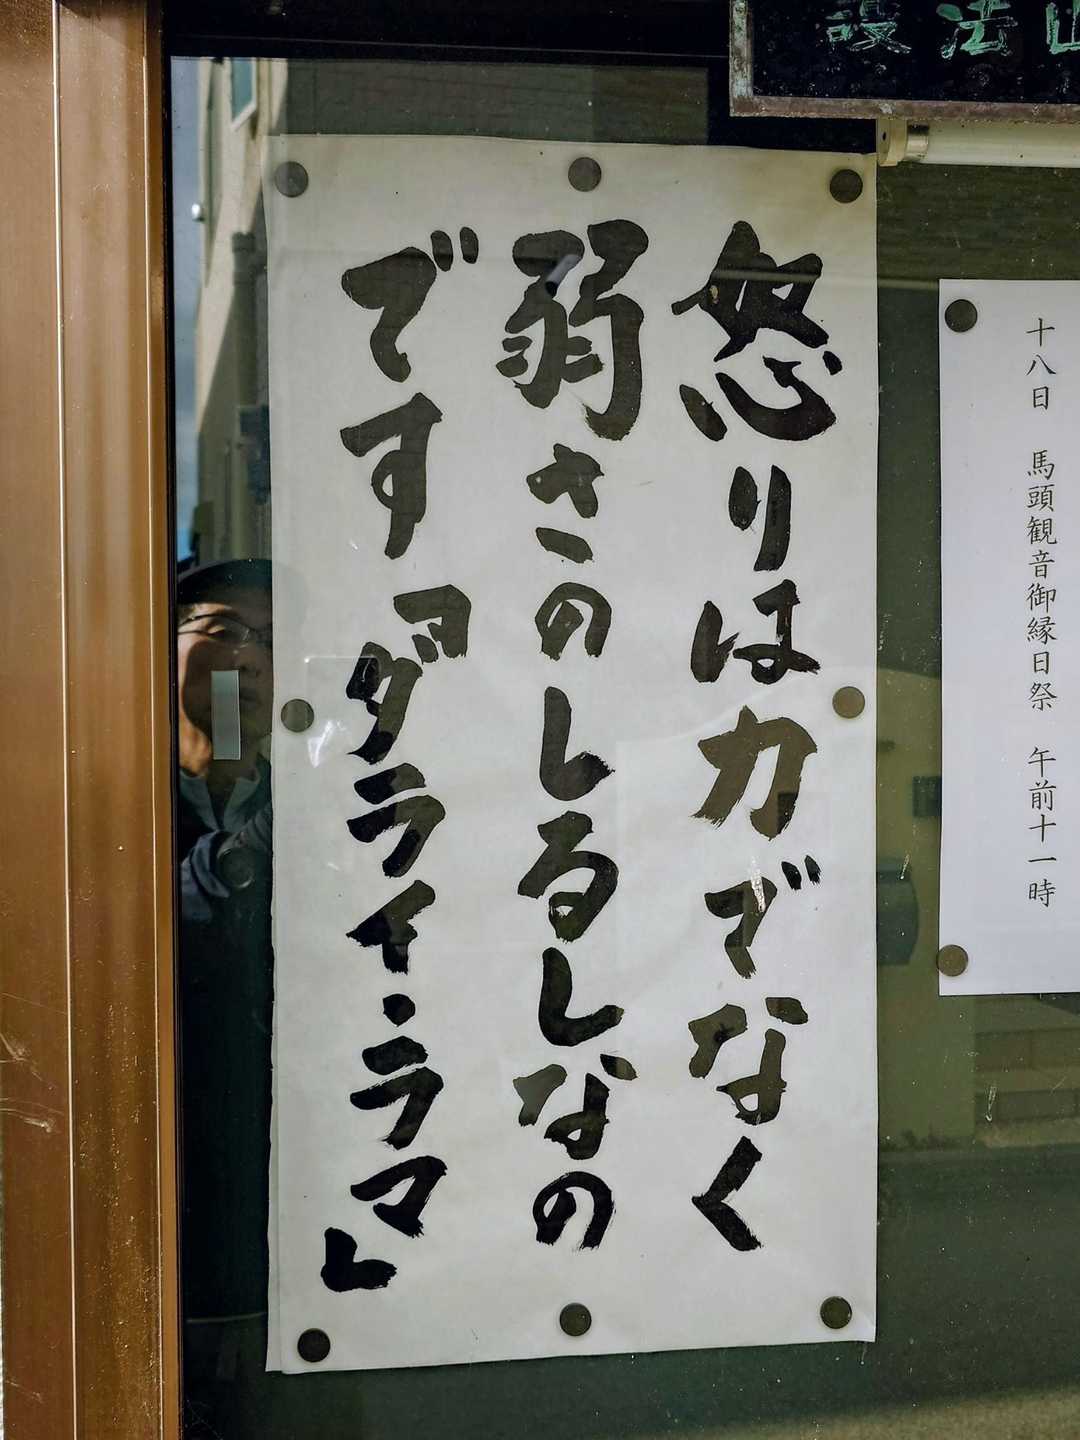 護法山
十八日 馬頭観音御縁日祭 午前十一時
怒りは力でなく
弱さのしるしなの
です『ダライ・ラマ』